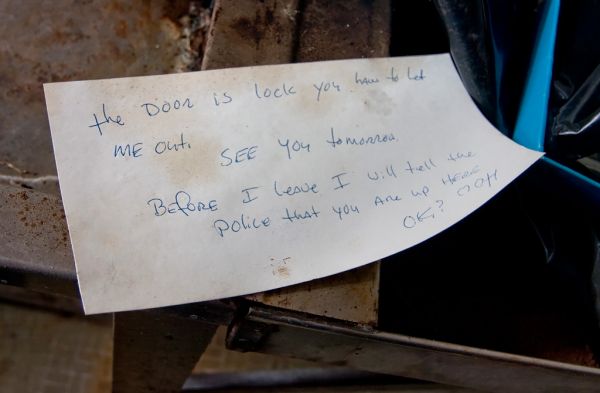 the DOOR is lock you have to let
ME OUT. SEE you tomorrow.
BEFORE I leave I will tell the
POLICE that you ARE up HERE
OK?